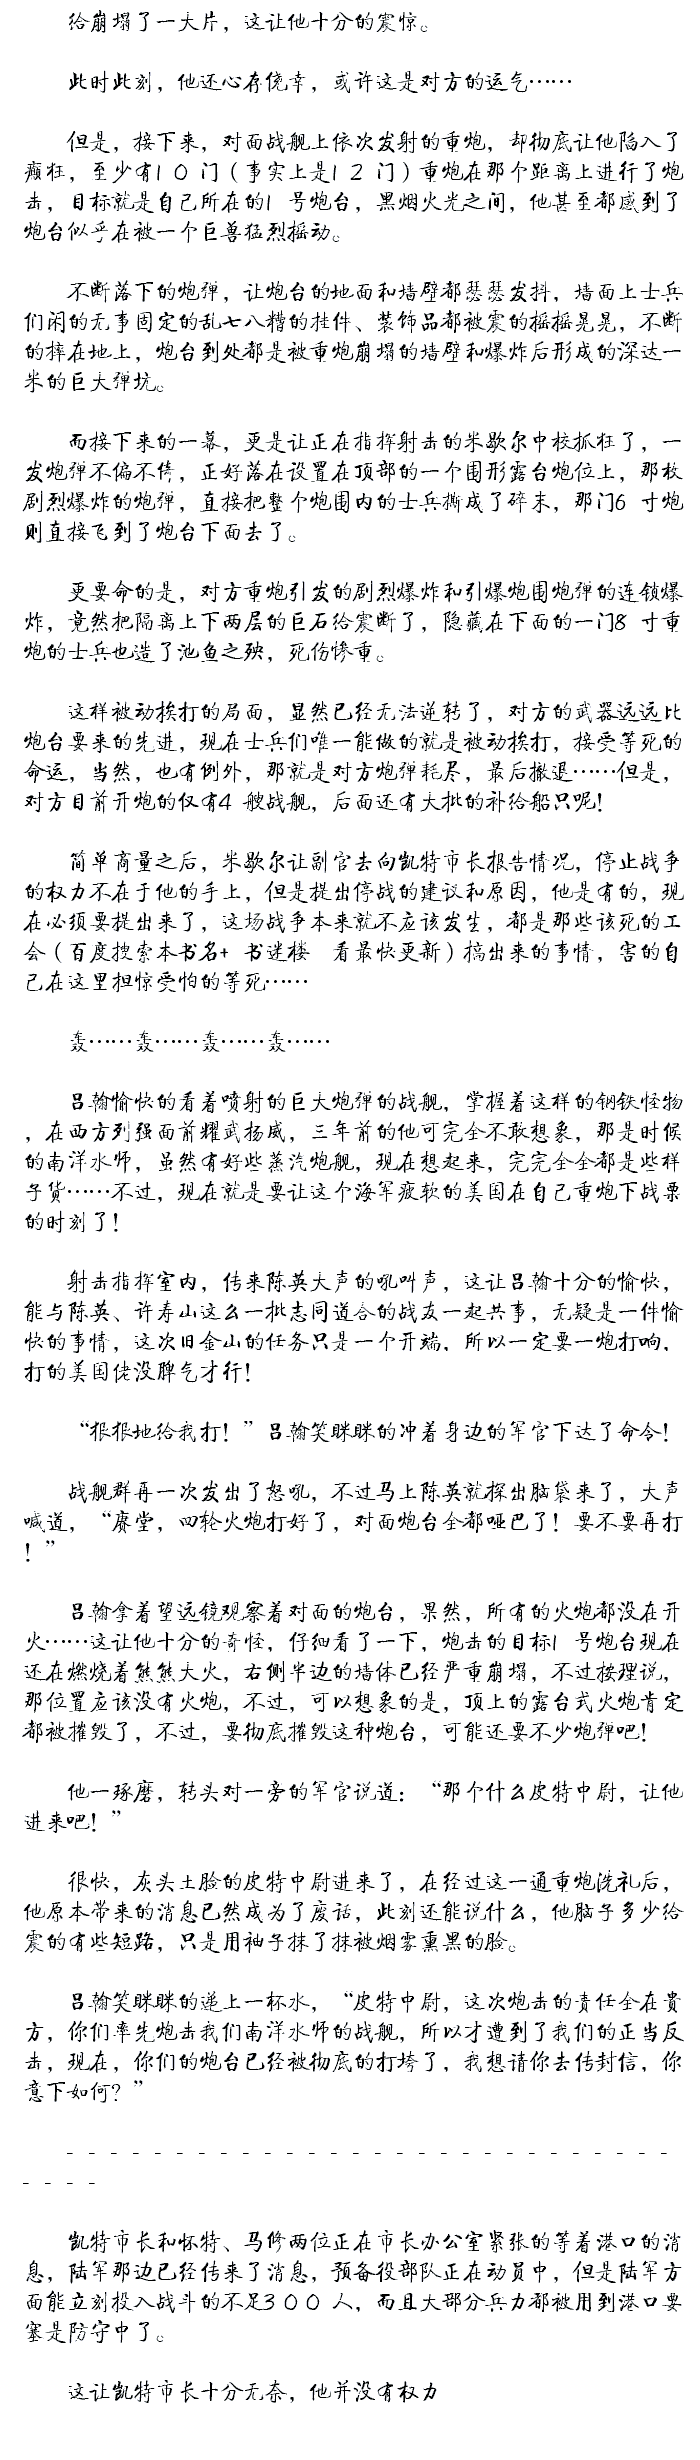 给崩塌了一大片，这让他十分的震惊。
此时此刻，他还心存侥幸，或许这是对方的运气……
但是，接下来，对面战舰上依次发射的重炮，却彻底让他陷入了
癫狂，至少有１０门（事实上是１２门）重炮在那个距离上进行了炮
击，目标就是自己所在的１号炮台，黑烟火光之间，他甚至都感到了
炮台似乎在被一个巨兽猛烈摇动。
不断落下的炮弹，让炮台的地面和墙壁都瑟瑟发抖，墙面上士兵
们闲的无事固定的乱七八糟的挂件、装饰品都被震的摇摇晃晃，不断
的摔在地上，炮台到处都是被重炮崩塌的墙壁和爆炸后形成的深达一
米的巨大弹坑。
而接下来的一幕，更是让正在指挥射击的米歇尔中校抓狂了，一
发炮弹不偏不倚，正好落在设置在顶部的一个围形露台炮位上，那枚
剧烈爆炸的炮弹，直接把整个炮围内的士兵撕成了碎末，那门6 寸炮
则直接飞到了炮台下面去了。
更要命的是，对方重炮引发的剧烈爆炸和引爆炮围炮弹的连锁爆
炸，竟然把隔离上下两层的巨石给震断了，隐藏在下面的一门8 寸重
炮的士兵也造了池鱼之殃，死伤惨重。
这样被动挨打的局面，显然已经无法逆转了，对方的武器远远比
炮台要来的先进，现在士兵们唯一能做的就是被动挨打，接受等死的
命运，当然，也有例外，那就是对方炮弹耗尽，最后撤退……但是，
对方目前开炮的仅有4 艘战舰，后面还有大批的补给船只呢！
简单商量之后，米歇尔让副官去向凯特市长报告情况，停止战争
的权力不在于他的手上，但是提出停战的建议和原因，他是有的，现
在必须要提出来了，这场战争本来就不应该发生，都是那些该死的工
会（百度搜索本书名+ 书迷楼 看最快更新）搞出来的事情，害的自
己在这里担惊受怕的等死……
轰……轰……轰……轰……
吕翰愉快的看着喷射的巨大炮弹的战舰，掌握着这样的钢铁怪物
，在西方列强面前耀武扬威，三年前的他可完全不敢想象，那是时候
的南洋水师，虽然有好些蒸汽炮舰，现在想起来，完完全全都是些样
子货……不过，现在就是要让这个海军疲软的美国在自己重炮下战栗
的时刻了！
射击指挥室内，传来陈英大声的吼叫声，这让吕翰十分的愉快，
能与陈英、许寿山这么一批志同道合的战友一起共事，无疑是一件愉
快的事情，这次旧金山的任务只是一个开端，所以一定要一炮打响，
打的美国佬没脾气才行！
“狠狠地给我打！”吕翰笑眯眯的冲着身边的军官下达了命令！
战舰群再一次发出了怒吼，不过马上陈英就探出脑袋来了，大声
喊道，“赓堂，四轮火炮打好了，对面炮台全都哑巴了！要不要再打
！”
吕翰拿着望远镜观察着对面的炮台，果然，所有的火炮都没在开
火……这让他十分的奇怪，仔细看了一下，炮击的目标1 号炮台现在
还在燃烧着熊熊大火，右侧半边的墙体已经严重崩塌，不过按理说，
那位置应该没有火炮，不过，可以想象的是，顶上的露台式火炮肯定
都被摧毁了，不过，要彻底摧毁这种炮台，可能还要不少炮弹吧！
他一琢磨，转头对一旁的军官说道：“那个什么皮特中尉，让他
进来吧！”
很快，灰头土脸的皮特中尉进来了，在经过这一通重炮洗礼后，
他原本带来的消息已然成为了废话，此刻还能说什么，他脑子多少给
震的有些短路，只是用袖子抹了抹被烟雾熏黑的脸。
吕翰笑眯眯的递上一杯水，“皮特中尉，这次炮击的责任全在贵
方，你们率先炮击我们南洋水师的战舰，所以才遭到了我们的正当反
击，现在，你们的炮台已经被彻底的打垮了，我想请你去传封信，你
意下如何？”
- - - - - - - - - - - - - - - - - - - - - - - - - - - -
- - - -
凯特市长和怀特、马修两位正在市长办公室紧张的等着港口的消
息，陆军那边已经传来了消息，预备役部队正在动员中，但是陆军方
面能立刻投入战斗的不足３００人，而且大部分兵力都被用到港口要
塞是防守中了。
这让凯特市长十分无奈，他并没有权力